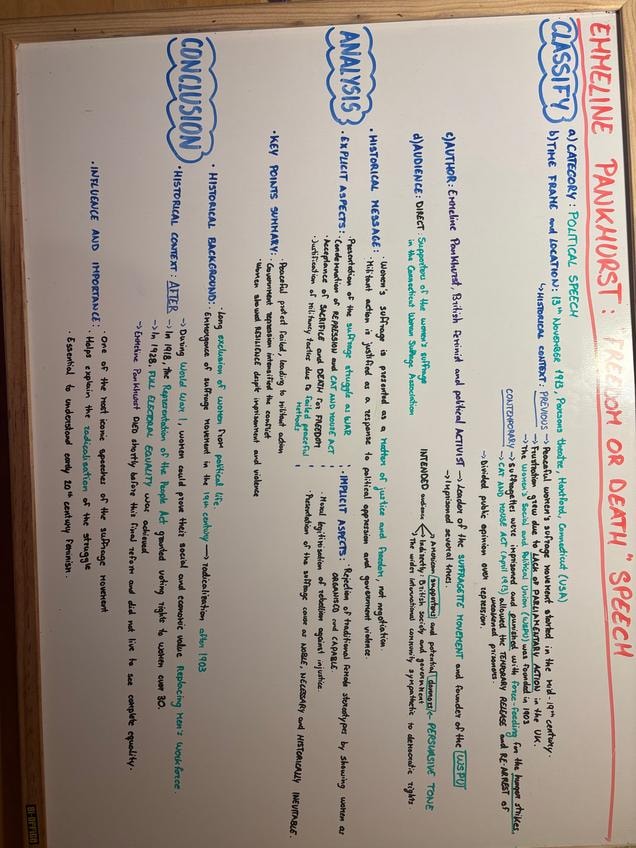 EMMELINE PANKHURST: "FREEDOM OR DEATH" SPEECH
CLASSIFY
a) CATEGORY: POLITICAL SPEECH
b) TIME FRAME and LOCATION: 13th NOVEMBER 1913, Parsons theatre, Hartford, Connecticut (USA)
↳ HISTORICAL CONTEXT: PREVIOUS → Peaceful women's suffrage movement started in the mid-19th century.
→ Frustration grew due to LACK OF PARLIAMENTARY ACTION in the UK.
→ The Women's Social and Political Union (WSPU) was founded in 1903
CONTEMPORARY → Suffragettes were imprisoned and punished with force-feeding for the hunger strikes.
→ CAT AND MOUSE ACT (April 1913) allowed the TEMPORARY RELEASE and RE-ARREST of
weakened prisoners.
→ Divided public opinion over repression.
c) AUTHOR: Emmeline Pankhurst, British feminist and political ACTIVIST → Leader of the SUFFRAGETTE MOVEMENT and founder of the WSPU
→ Imprisoned several times.
d) AUDIENCE: DIRECT: Supporters of the women's suffrage
in the Connecticut Woman Suffrage Association
INTENDED audience → American supporters and potential donors ← PERSUASIVE TONE
→ Indirectly: British society and government
→ The wider international community sympathetic to democratic rights.
ANALYSIS
• HISTORICAL MESSAGE: • Women's suffrage is presented as a matter of justice and freedom, not negotiation.
• Militant action is justified as a response to political oppression and government violence.
• EXPLICIT ASPECTS: • Presentation of the suffrage struggle as WAR
• Condemnation of REPRESSION and CAT AND MOUSE ACT
• Acceptance of SACRIFICE and DEATH for FREEDOM
• Justification of military tactics due to failed peaceful
methods
• IMPLICIT ASPECTS: • Rejection of traditional female stereotypes by showing women as
ORGANISED and CAPABLE.
• Moral legitimisation of rebellion against injustice.
• Presentation of the suffrage cause as NOBLE, NECESSARY and HISTORICALLY INEVITABLE.
• KEY POINTS SUMMARY: • Peaceful protest failed, leading to militant action
• Government repression intensified the conflict
• Women showed RESILIENCE despite imprisonment and violence
CONCLUSION
• HISTORICAL BACKGROUND: • Long exclusion of women from political life
• Emergence of suffrage movement in the 19th century → radicalisation after 1903
• HISTORICAL CONTEXT: AFTER → During World War I, women could prove their social and economic value replacing men's workforce.
→ In 1918, the Representation of the People Act granted voting rights to women over 30.
→ In 1928, FULL ELECTORAL EQUALITY was achieved
→ Emmeline Pankhurst DIED shortly before this final reform and did not live to see complete equality.
• INFLUENCE AND IMPORTANCE: • One of the most iconic speeches of the suffrage movement
• Helps explain the radicalisation of the struggle
• Essential to understand early 20th century feminism.
BI-OFFICE